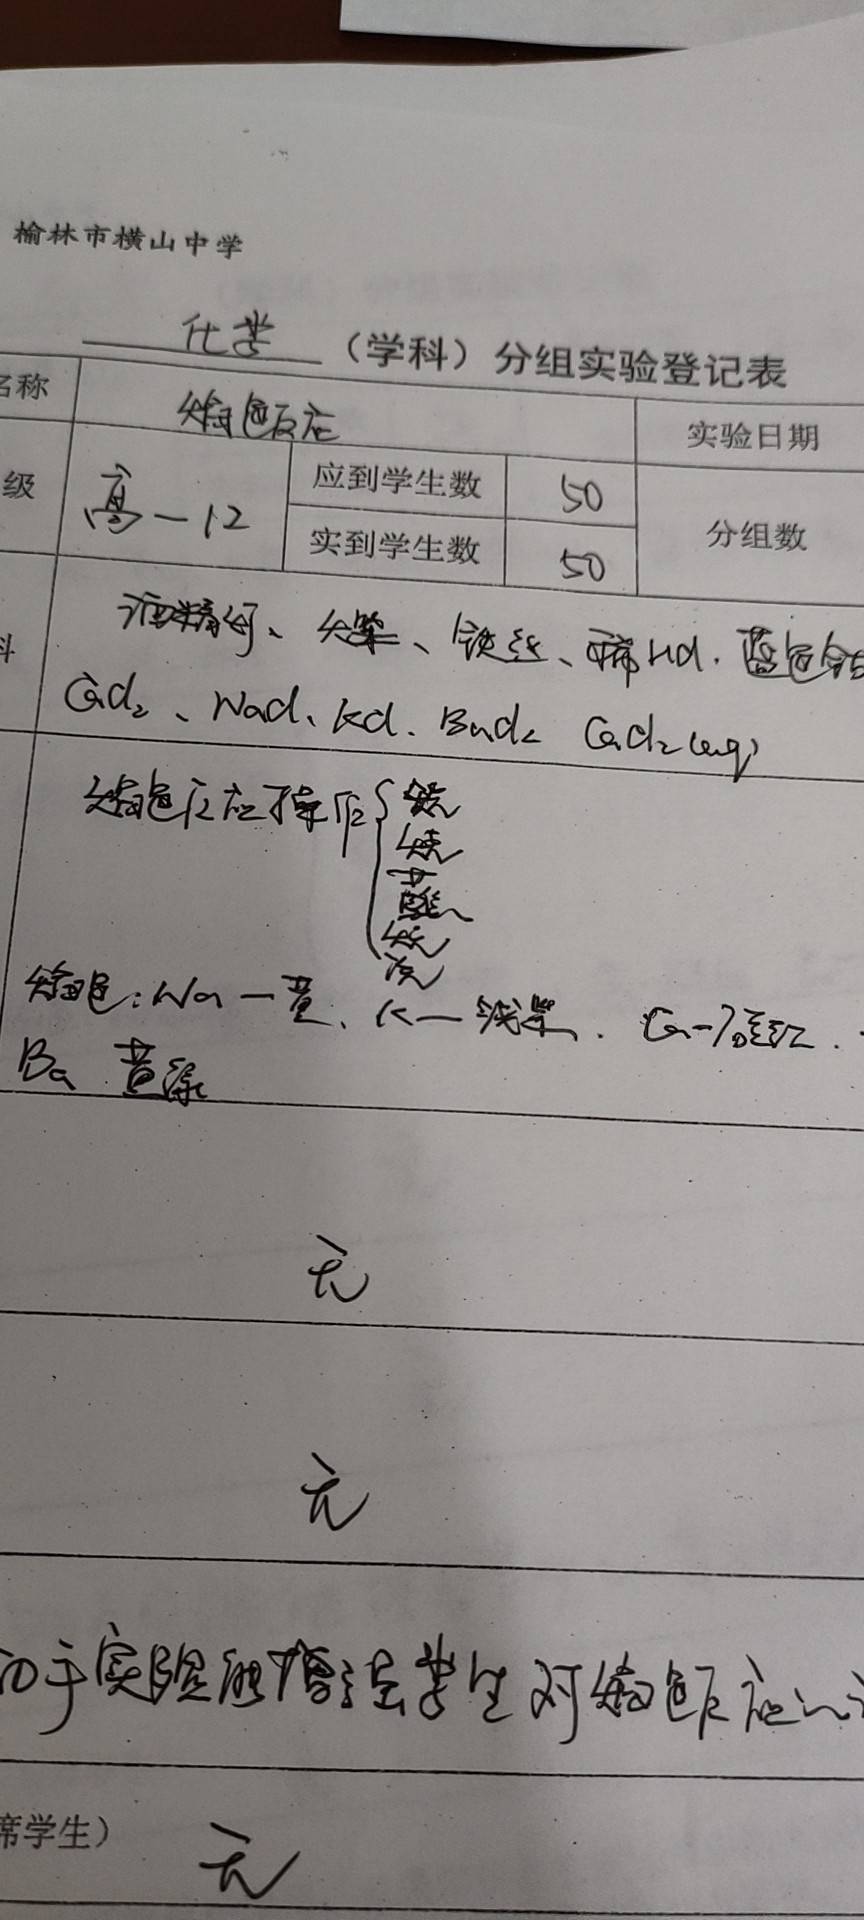 榆林市横山中学
化学（学科）分组实验登记表
名称 焰色反应 实验日期
级 高一12 应到学生数 50 分组数
实到学生数 50
酒精灯、火柴、铁丝、稀HCl、蓝色钴
CaCl₂、NaCl、KCl、BaCl₂ CaCl₂(aq)
焰色反应操作 洗
烧
蘸
烧
洗
焰色：Na—黄、K—浅紫、Ca—砖红、
Ba 黄绿
无
无
动手实验能增强学生对焰色反应
席学生）
无